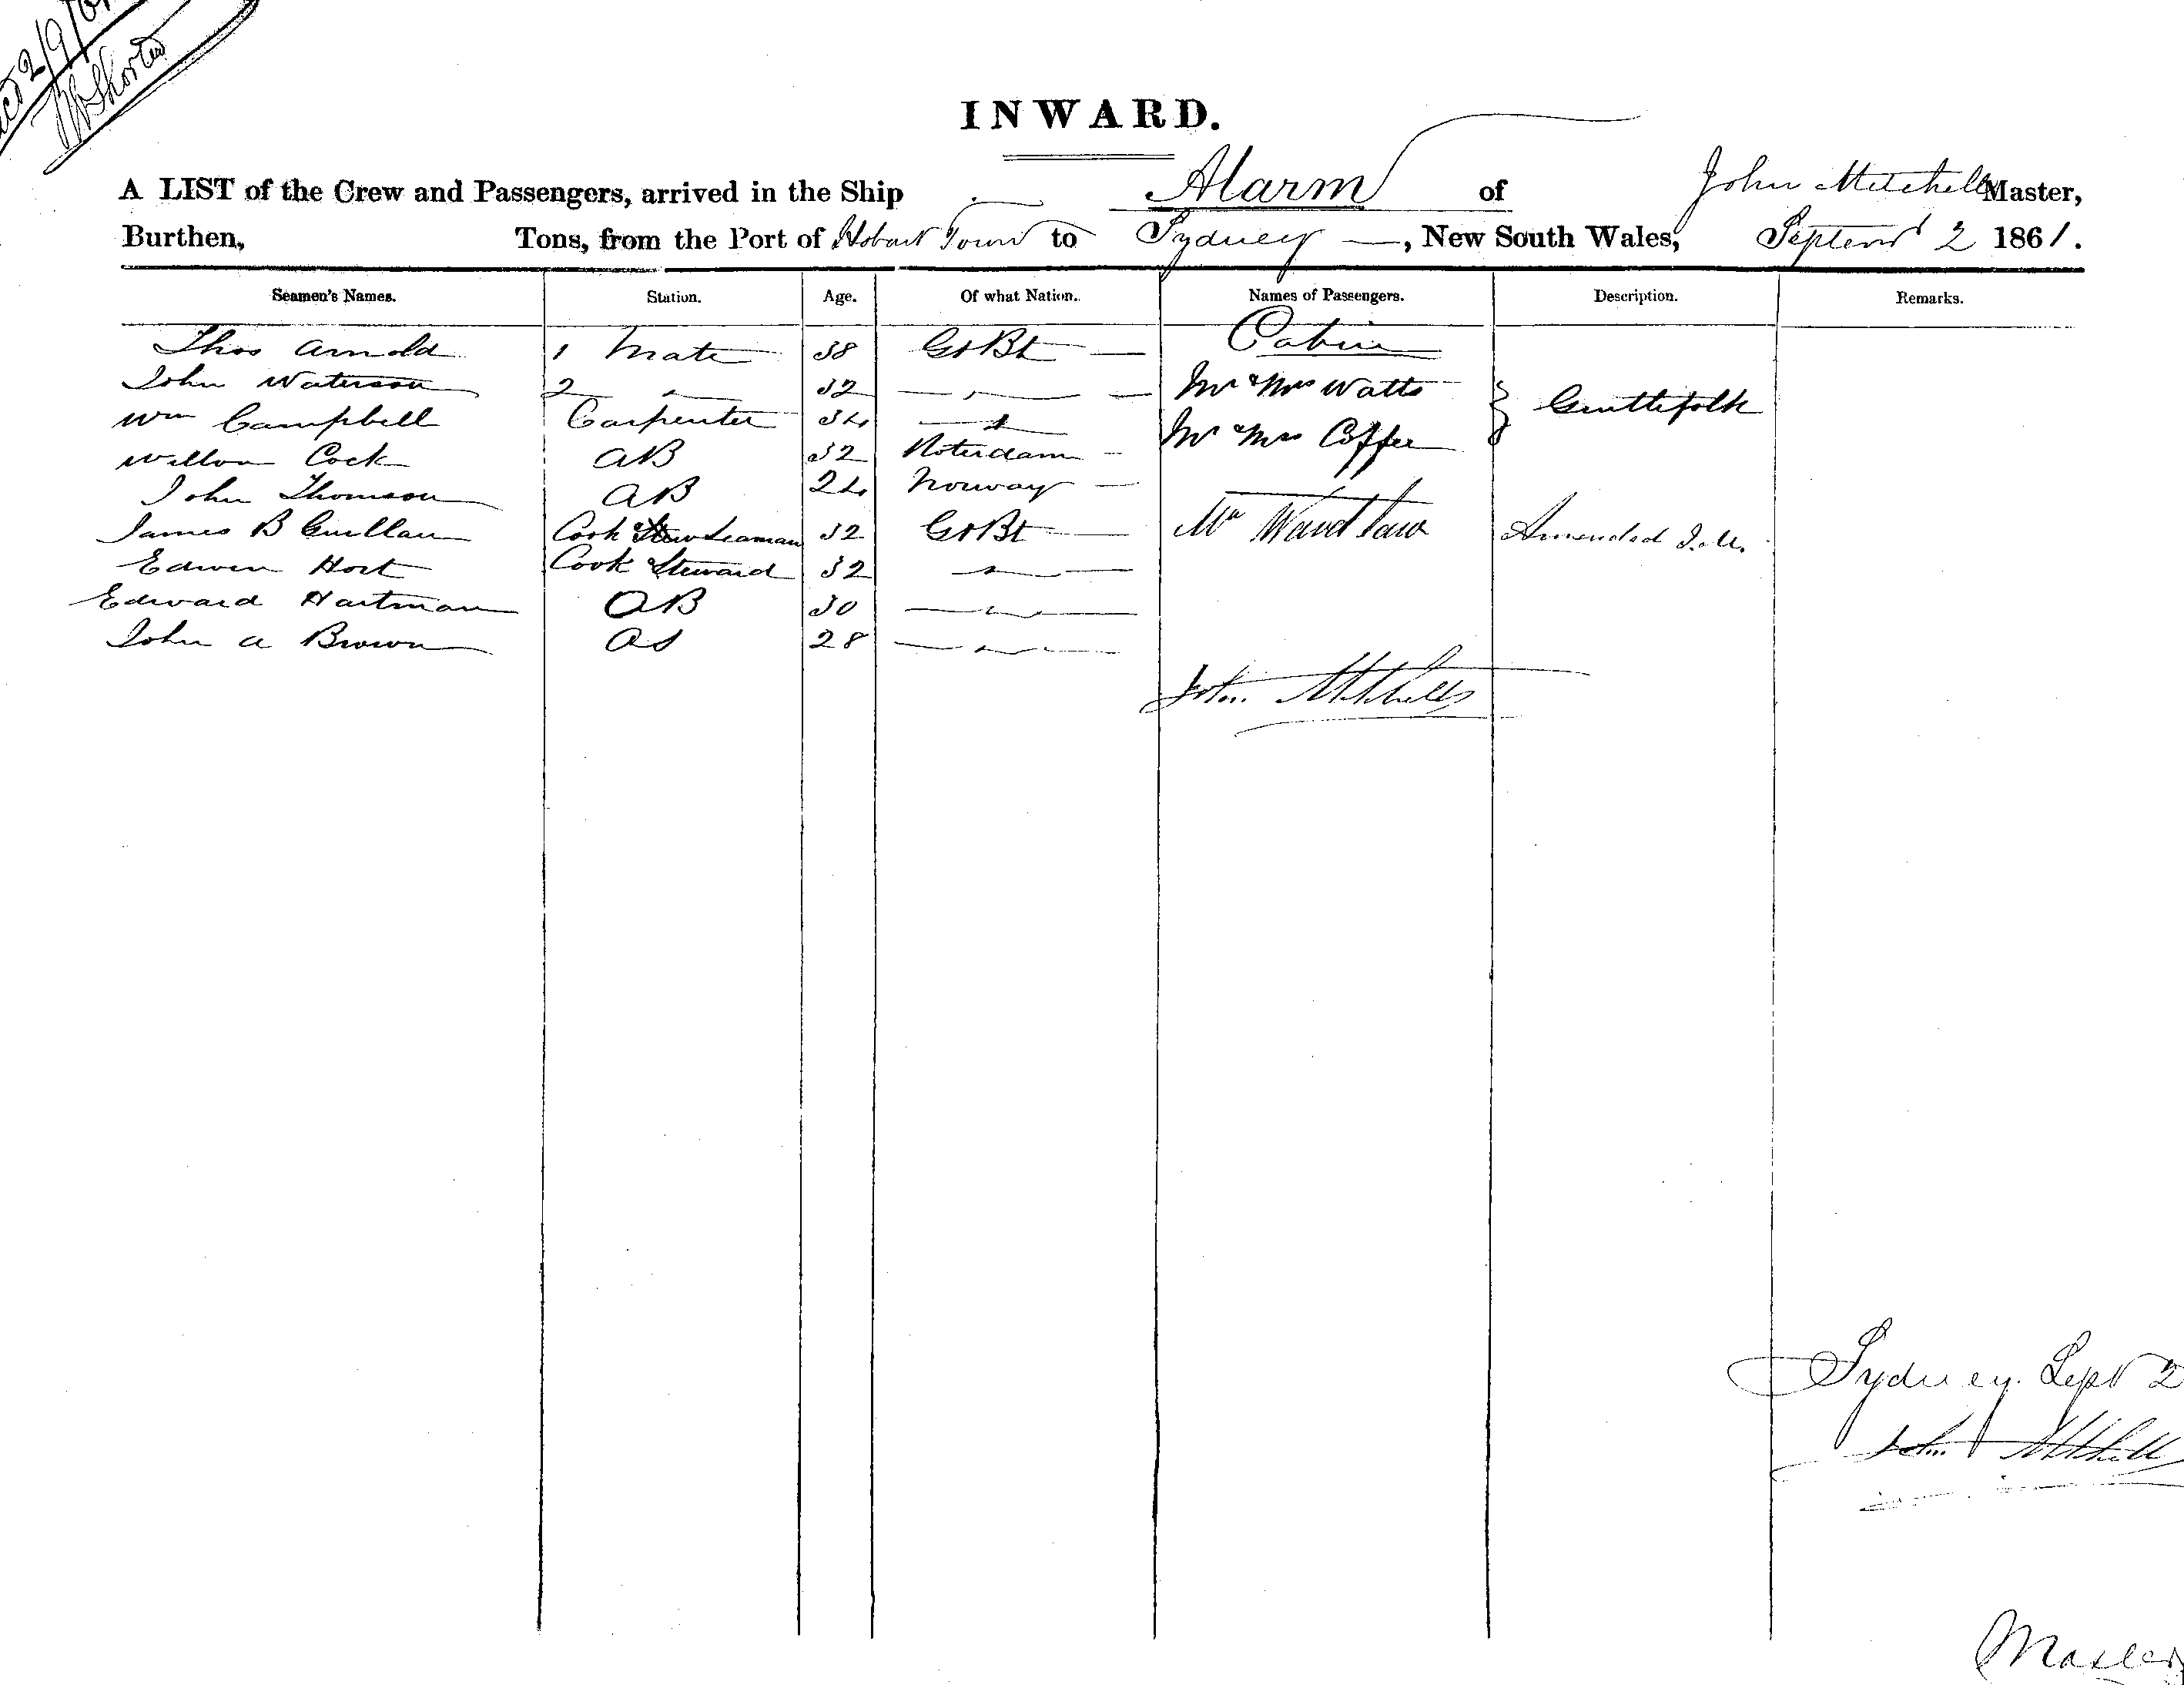 2/9/61
INWARD.
A LIST of the Crew and Passengers, arrived in the Ship Alarm of John Mitchell Master,
Burthen, Tons, from the Port of Hobart Town to Sydney, New South Wales, Septemr 2 1861.
Seamen's Names. Station. Age. Of what Nation. Names of Passengers. Description. Remarks.
Cabin
Thos Arnold 1 Mate 38 Gt Bt
John Waterson 2 " 32 " Mr & Mrs Watts
Wm Campbell Carpenter 34 " Gentlefolk
Cock AB 32 Roterdam Mr & Mrs Coffer
John Thomson AB 24 Norway
James B Cook Seaman 32 Gt Bt Mr Amended J.M.
Edwin Hort Cook Steward 32 "
Edward Hartman OB 30 "
John A Brown OS 28 "
John Mitchell
Sydney. Sept 2
John Mitchell
Master